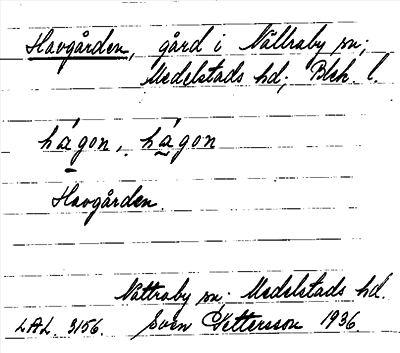 Havgården, gård i Nättraby sn;
Medelstads hd; Blek. l.
hágon, hágon
Havgården.
Nättraby sn; Medelstads hd.
LAL. 3156. Sven Pettersson 1936.